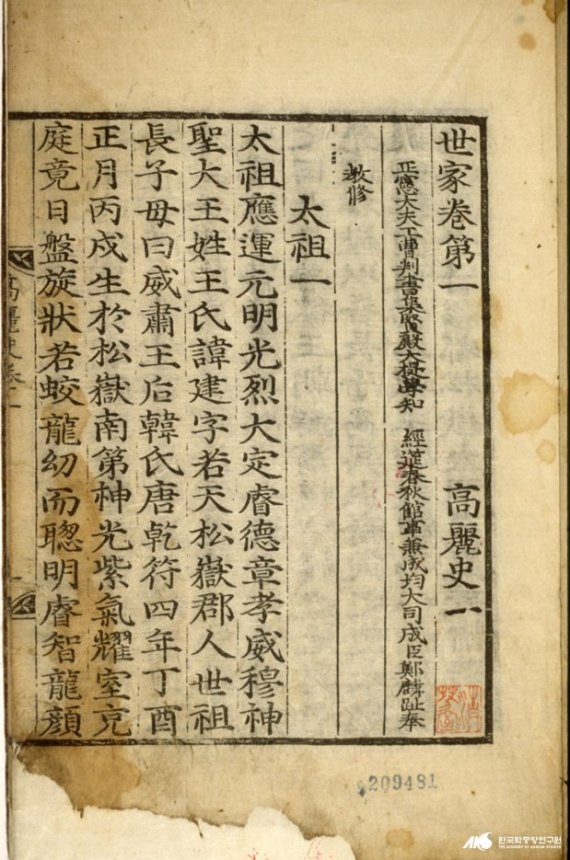 世家卷第一 高麗史一
正憲大夫工曹判書集賢殿大提學知 經筵春秋館事兼成均大司成臣鄭麟趾奉
教修
太祖一
太祖應運元明光烈大定睿德章孝威穆神
聖大王姓王氏諱建字若天松嶽郡人世祖
長子母曰威肅王后韓氏唐乾符四年丁酉
正月丙戌生於松嶽南第神光紫氣耀室充
庭竟日盤旋狀若蛟龍幼而聰明睿智龍顔
高麗史卷一
209481
한국학중앙연구원
THE ACADEMY OF KOREAN STUDIES